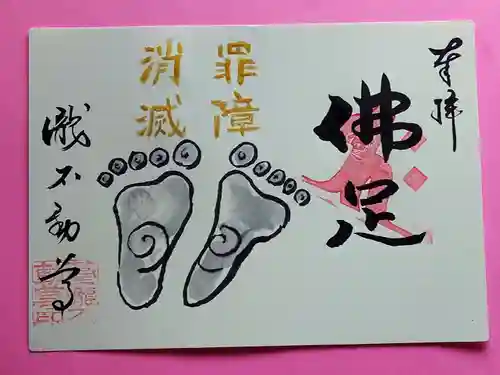 奉拝
佛足
罪障
消滅
瀧不動尊